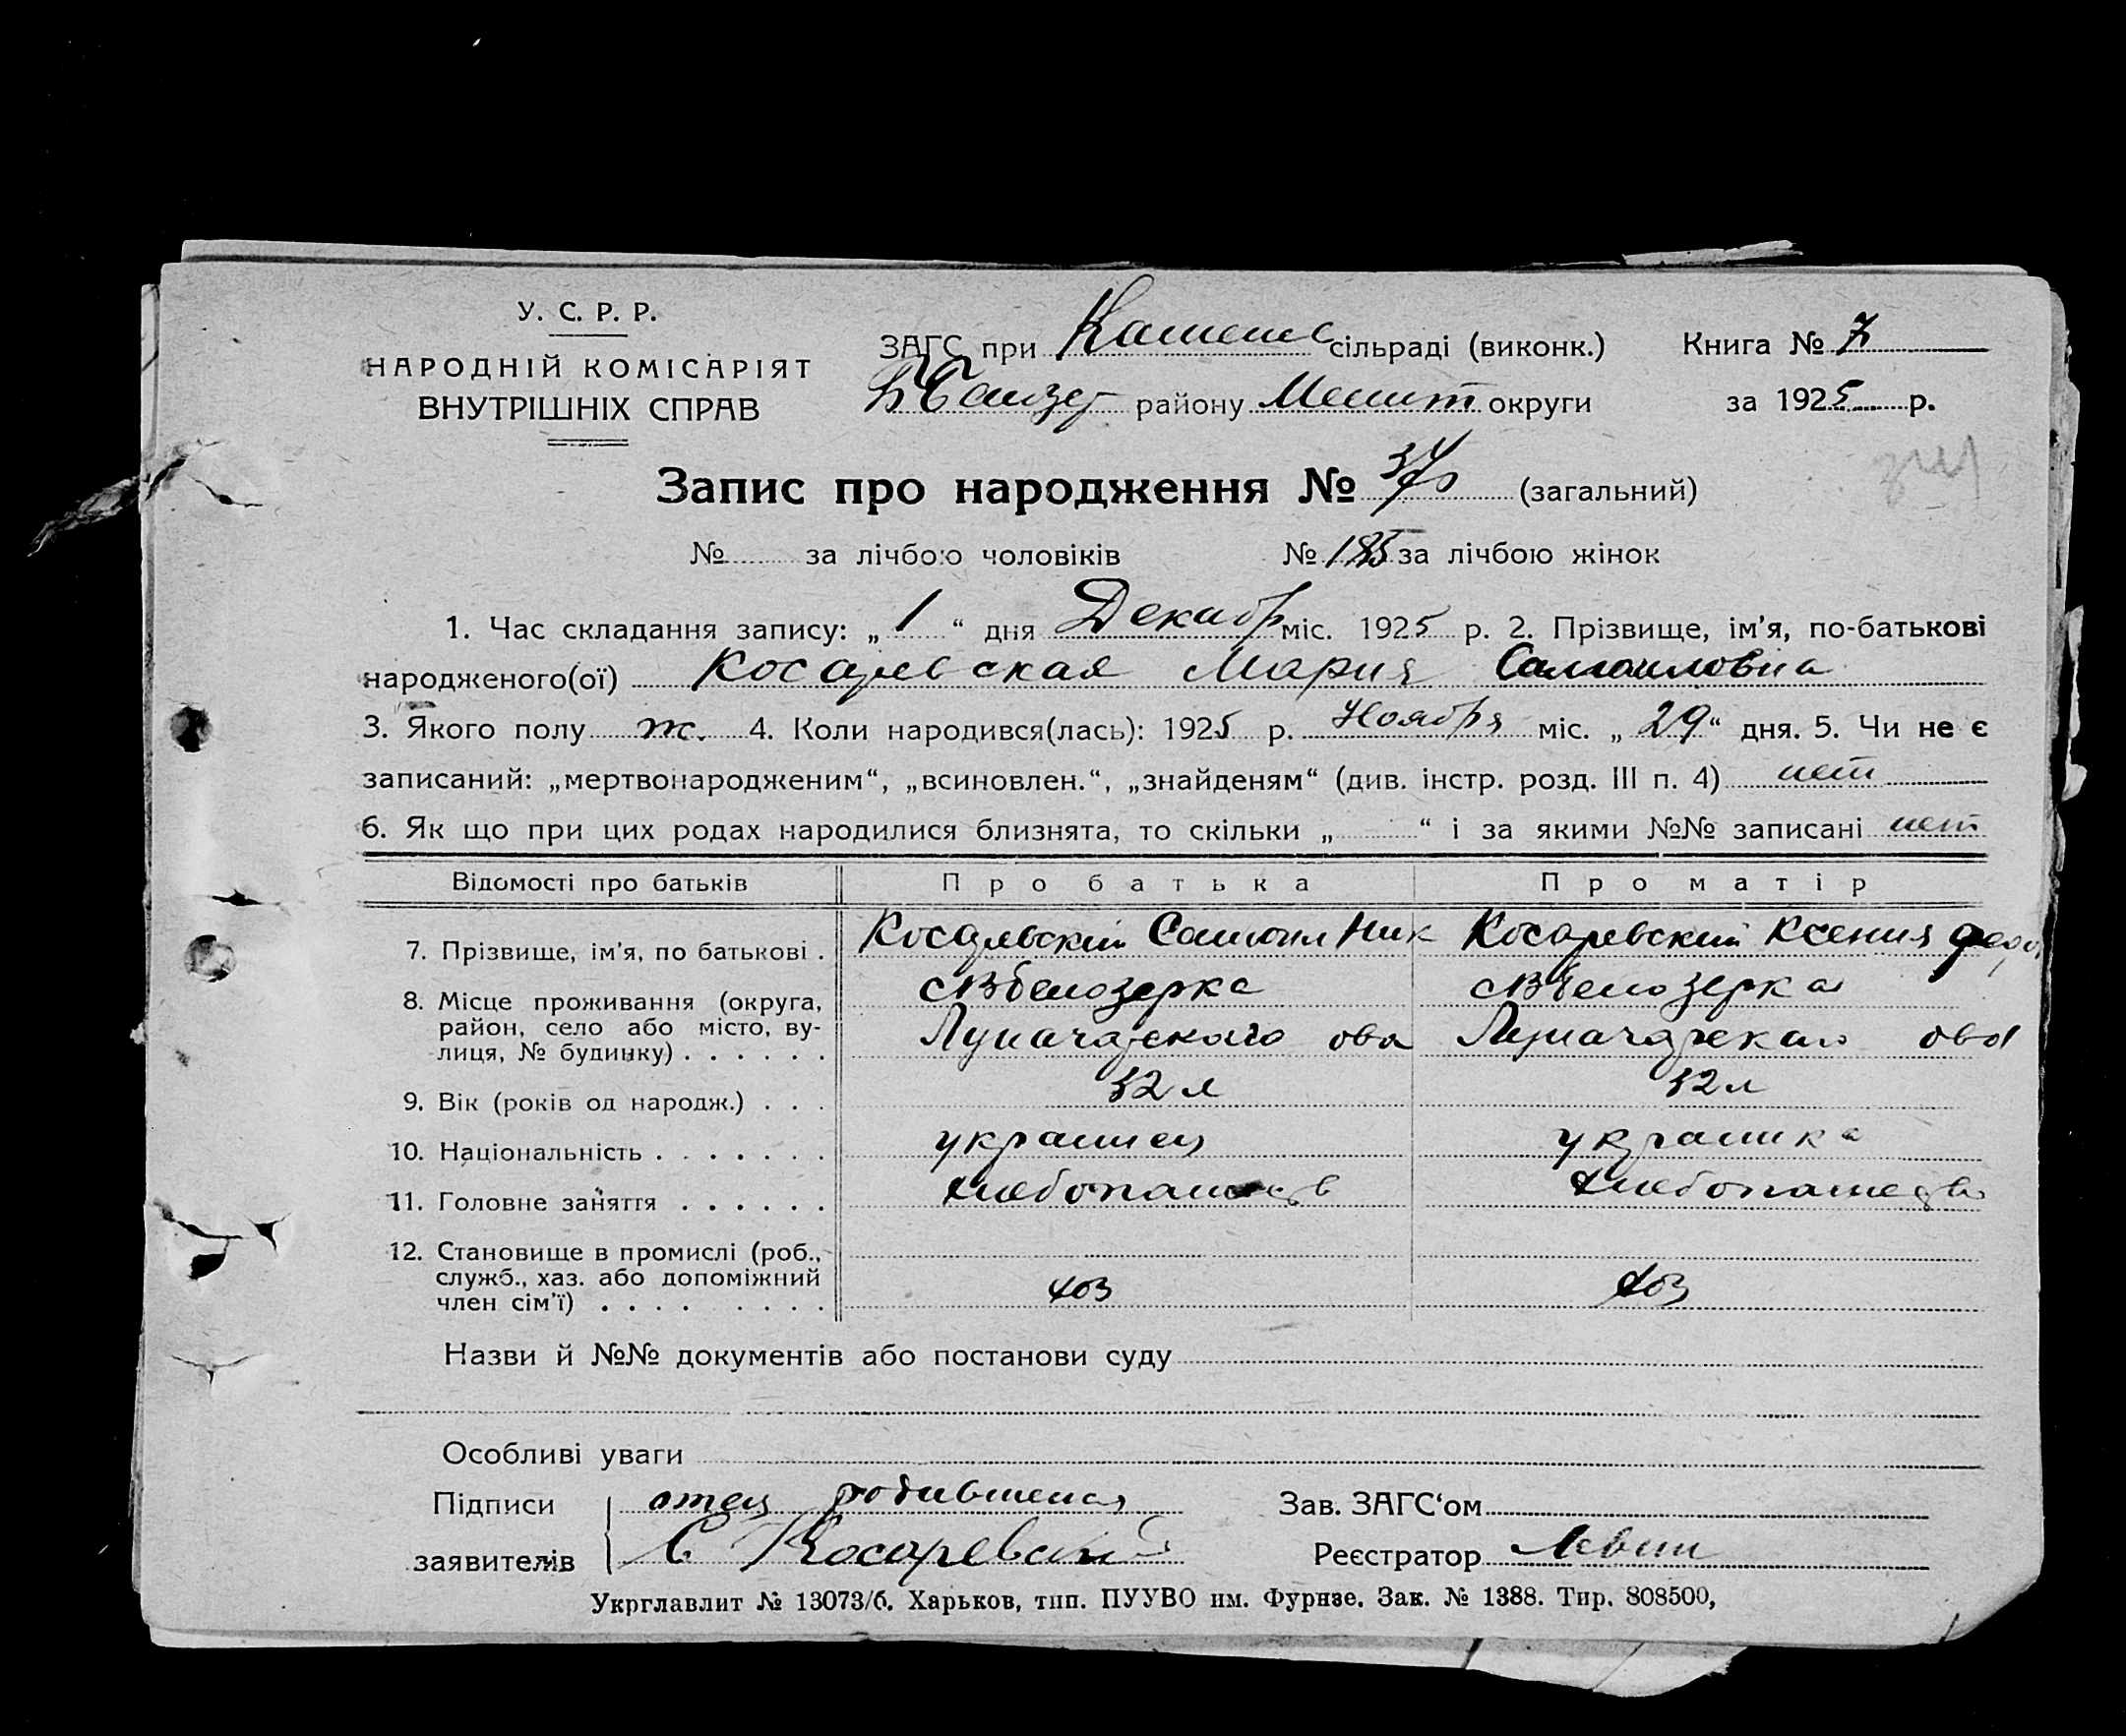 У. С. Р. Р.
НАРОДНІЙ КОМІСАРІЯТ
ВНУТРІШНІХ СПРАВ
ЗАГС при Каменс сільраді (виконк.)
району Мелит округи
Книга № 7
за 1925 р.
Запис про народження № (загальний)
№ за лічбою чоловіків № 185 за лічбою жінок
1. Час складання запису: „ 1 “ дня Декабр міс. 1925 р. 2. Прізвище, ім'я, по-батькові
народженого(ої) Косаревская Мария Самоиловна
3. Якого полу ж. 4. Коли народився(лась): 1925 р. Ноября міс. „ 29 “ дня. 5. Чи не є
записаний: „мертвонародженим“, „всиновлен.“, „знайденям“ (див. інстр. розд. III п. 4) нет
6. Як що при цих родах народилися близнята, то скільки „ “ і за якими №№ записані нет
Відомості про батьків Про батька Про матір
7. Прізвище, ім'я, по батькові . Косаревский Самоил Ник Косаревский Ксения Федо
8. Місце проживання (округа, сВбелозерка сВбелозерка
район, село або місто, ву- Луначарского ова Луначарского ова
лиця, № будинку) . . . . . .
9. Вік (років од народж.) . . . 32 л 32 л
10. Національність . . . . . . . украинец украинка
11. Головне заняття . . . . . . хлебопашеств хлебопашество
12. Становище в промислі (роб.,
служб., хаз. або допоміжний хоз хоз
член сім'ї) . . . . . . . .
Назви й №№ документів або постанови суду
Особливі уваги
Підписи отец родившейся Зав. ЗАГС'ом
заявителів С Косаревский Реєстратор Левин
Укрглавлит № 13073/б. Харьков, тип. ПУУВО им. Фрунзе. Зак. № 1388. Тир. 808500,